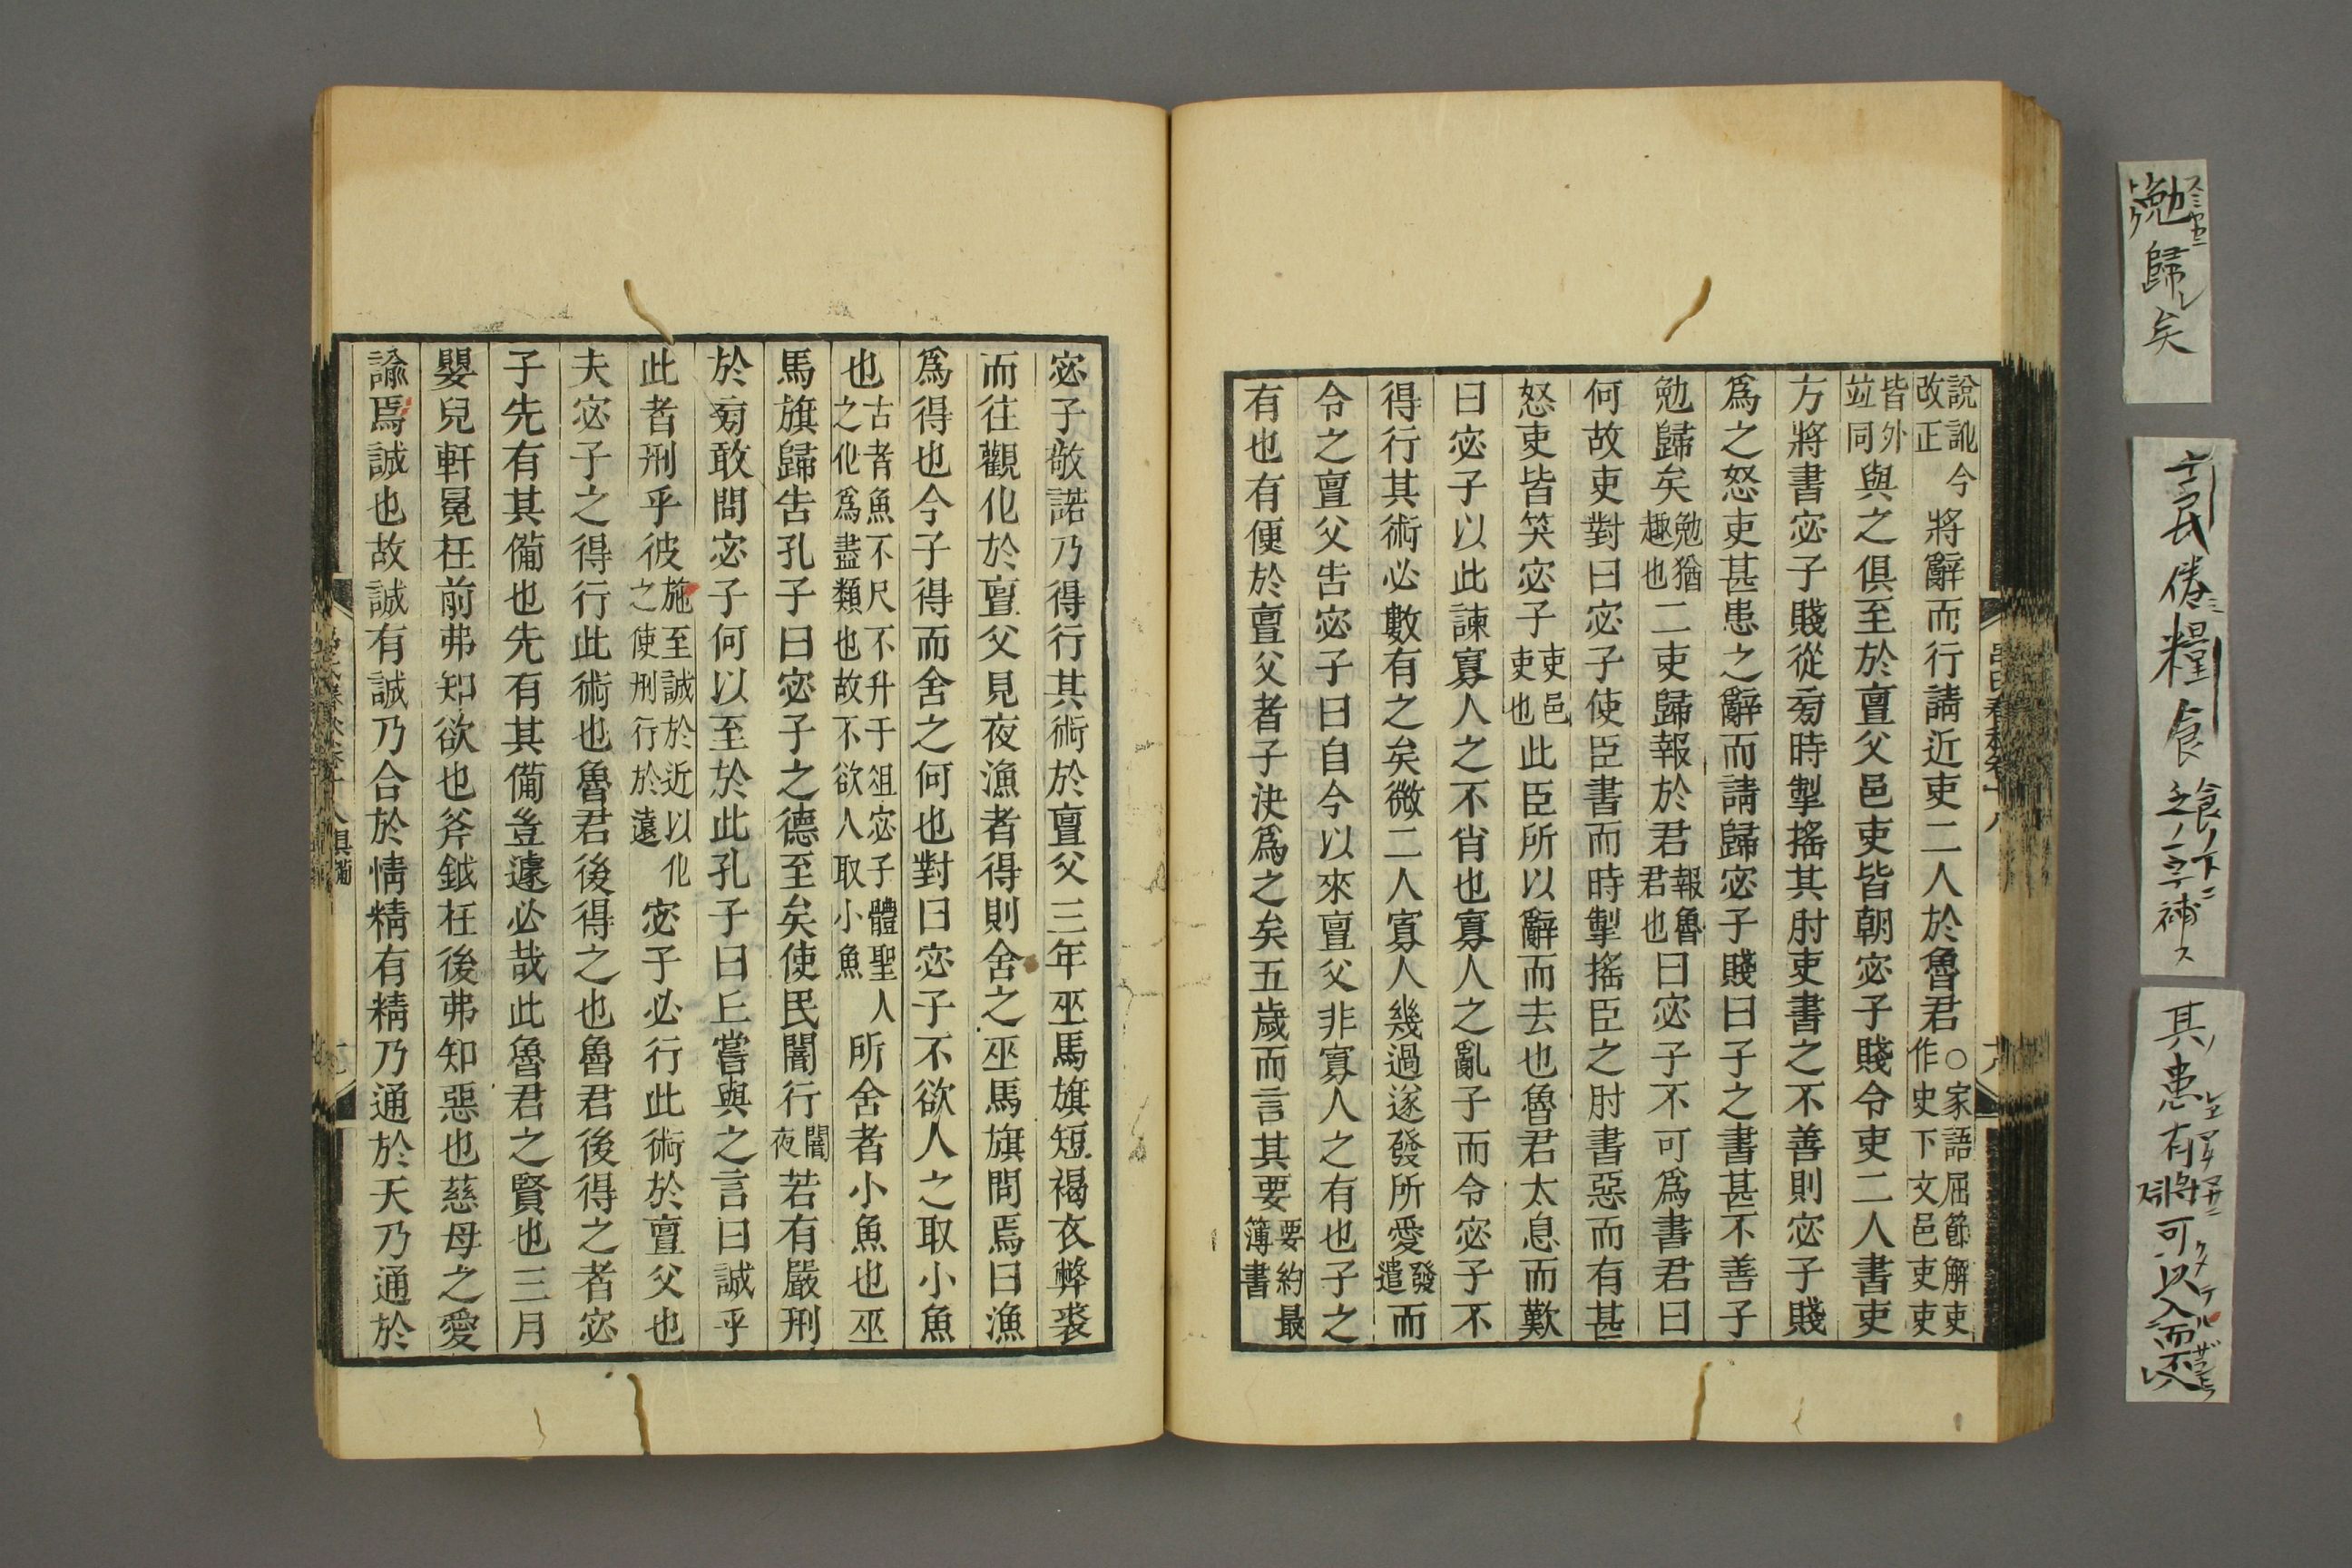 說訛今改正將辭而行請近吏二人於魯君○家語屈節解吏作史下文邑吏吏
皆外竝同與之俱至於亶父邑吏皆朝宓子賤令吏二人書吏
方將書宓子賤從㫄時掣搖其肘吏書之不善則宓子賤
爲之怒吏甚患之辭而請歸宓子賤曰子之書甚不善子
勉歸矣勉猶趣也二吏歸報於君報魯君也曰宓子不可爲書君曰
何故吏對曰宓子使臣書而時掣搖臣之肘書惡而有甚
怒吏皆笑宓子吏邑吏也此臣所以辭而去也魯君太息而歎
曰宓子以此諫寡人之不肖也寡人之亂子而令宓子不
得行其術必數有之矣微二人寡人幾過遂發所愛發遣而
令之亶父告宓子曰自今以來亶父非寡人之有也子之
有也有便於亶父者子決爲之矣五歲而言其要要約最簿書
宓子敬諾乃得行其術於亶父三年巫馬旗短褐衣弊裘
而往觀化於亶父見夜漁者得則舍之巫馬旗問焉曰漁
爲得也今子得而舍之何也對曰宓子不欲人之取小魚
也古者魚不尺不升于俎宓子體聖人之化爲盡類也故不欲人取小魚所舍者小魚也巫
馬旗歸告孔子曰宓子之德至矣使民闇行闇夜若有嚴刑
於㫄敢問宓子何以至於此孔子曰丘嘗與之言曰誠乎
此者刑乎彼施至誠於近以化之使刑行於遠宓子必行此術於亶父也
夫宓子之得行此術也魯君後得之也魯君後得之者宓
子先有其備也先有其備豈遽必哉此魯君之賢也三月
嬰兒軒冕在前弗知欲也斧鉞在後弗知惡也慈母之愛
諭焉誠也故誠有誠乃合於情精有精乃通於天乃通於
具備
勉歸レ矣
スミヤカニ
トク
糧食
飧ノ下ニ
之ノ字補ス
其ノ患有將可以入而不入